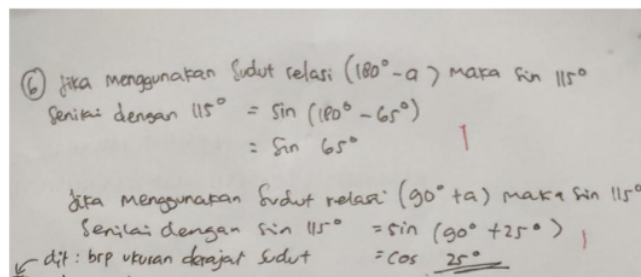 ⑥ Jika menggunakan Sudut relasi (180° - a) maka Sin 115°
Senilai dengan 115° = Sin (180° - 65°)
= Sin 65°
1
Jika menggunakan Sudut relasi (90° + a) maka Sin 115°
Senilai dengan sin 115° = sin (90° + 25°)
1
dit : brp ukuran derajat sudut = cos 25°